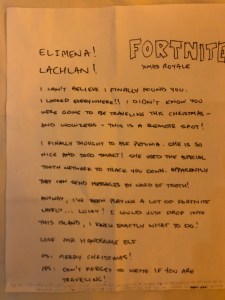 ELIMENA!
FORTNITE
LACHLAN!
XMAS ROYALE
I CAN'T BELIEVE I FINALLY FOUND YOU.
I LOOKED EVERYWHERE!! I DIDN'T KNOW YOU
WERE GOING TO BE TRAVELING THIS CHRISTMAS -
AND WOWZERS - THIS IS A REMOTE SPOT!
I FINALLY THOUGHT TO ASK PETUNIA. SHE IS SO
NICE AND SOOO SMART! SHE USED THE SPECIAL
TOOTH NETWORK TO TRACK YOU DOWN. APPARENTLY
THEY CAN SEND MESSAGES BY WORD OF TOOTH!
ANYWAY, I'VE BEEN PLAYING A LOT OF FORTNITE
LATELY... I COULD JUST DROP INTO
THIS ISLAND, I KNEW EXACTLY WHAT TO DO!
LOVE ELF
PS. MERRY CHRISTMAS!
PPS. DON'T FORGET TO WRITE IF YOU ARE
TRAVELING!